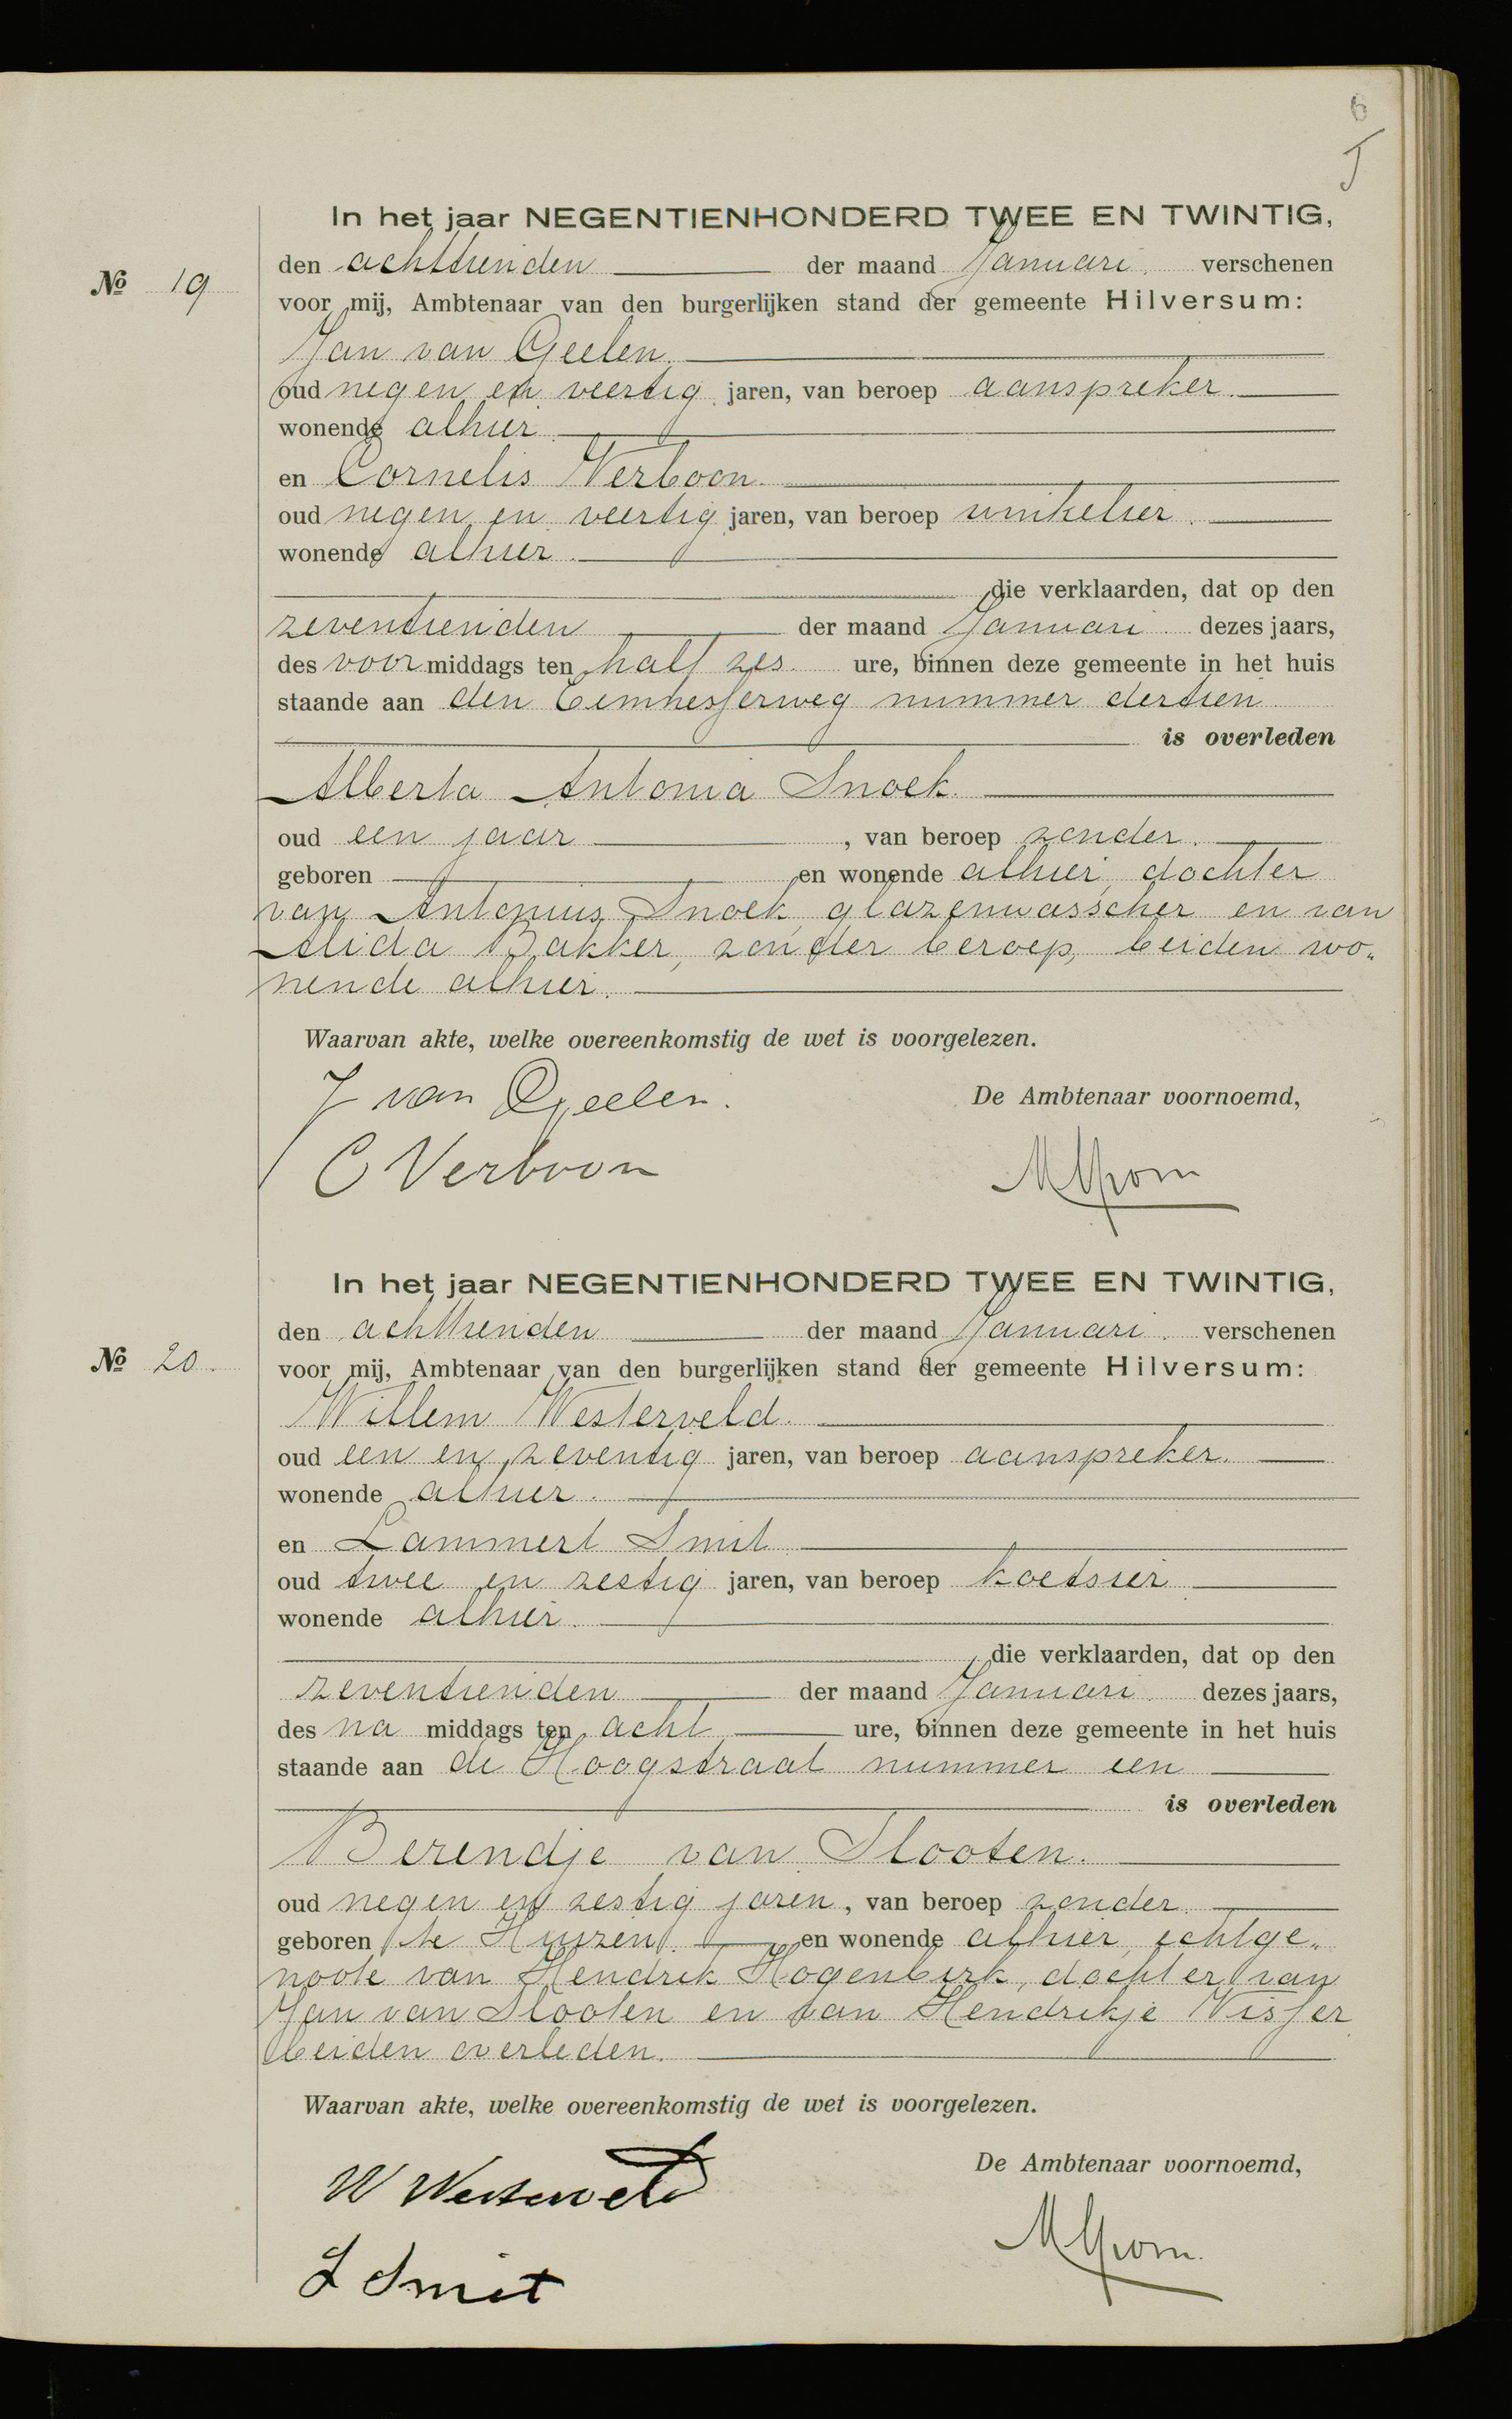 6
5
In het jaar NEGENTIENHONDERD TWEE EN TWINTIG,
den achttienden der maand Januari verschenen
№ 19
voor mij, Ambtenaar van den burgerlijken stand der gemeente Hilversum:
Jan van Geelen.
oud negen en veertig jaren, van beroep aanspreker.
wonende alhier
en Cornelis Verboon.
oud negen en veertig jaren, van beroep winkelier.
wonende alhier.
, die verklaarden, dat op den
zeventienden der maand Januari dezes jaars,
des voormiddags ten half zes ure, binnen deze gemeente in het huis
staande aan den Eemnesserweg nummer dertien
is overleden
Alberta Antonia Snoek.
oud een jaar , van beroep zonder.
geboren en wonende alhier, dochter
van Antonius Snoek, glazenwasscher en van
Alida Bakker, zonder beroep, beiden wo-
nende alhier.
Waarvan akte, welke overeenkomstig de wet is voorgelezen.
J van Geelen.
De Ambtenaar voornoemd,
C Verboon
In het jaar NEGENTIENHONDERD TWEE EN TWINTIG,
den achttienden der maand Januari. verschenen
№ 20.
voor mij, Ambtenaar van den burgerlijken stand der gemeente Hilversum:
Willem Westerveld.
oud een en zeventig jaren, van beroep aanspreker.
wonende alhier.
en Lammert Smit
oud twee en zestig jaren, van beroep koetsier
wonende alhier.
, die verklaarden, dat op den
zeventienden der maand Januari dezes jaars,
des na middags ten acht ure, binnen deze gemeente in het huis
staande aan de Hoogstraat nummer een
is overleden
Berendje van Slooten.
oud negen en zestig jaren, van beroep zonder.
geboren te Huizen. en wonende alhier, echtge-
noote van Hendrik Hogenbirk, dochter van
Jan van Slooten en van Hendrikje Visser
beiden overleden.
Waarvan akte, welke overeenkomstig de wet is voorgelezen.
W Westerveld
De Ambtenaar voornoemd,
L Smit